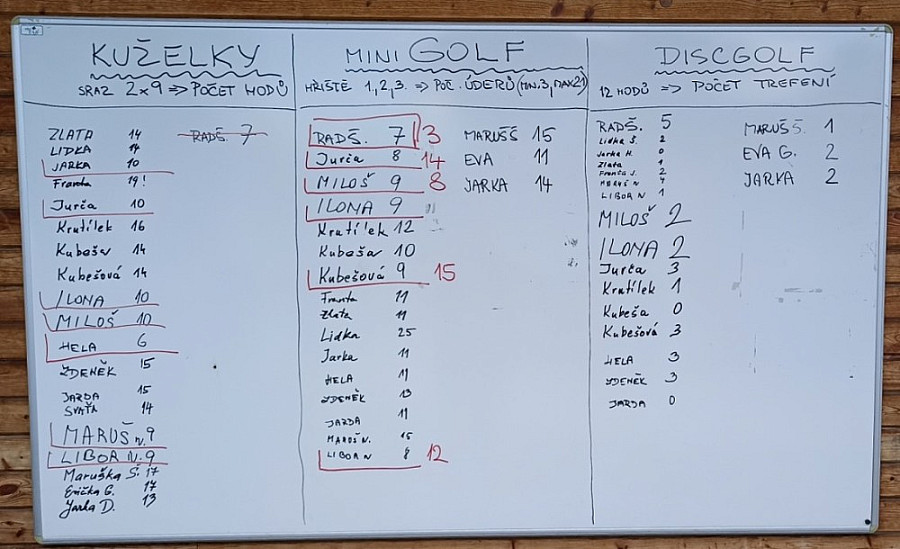 KUŽELKY
SRAZ 2x9 => POČET HODŮ
ZLATA 14
LIDKA 14
JARKA 10
Franta 19!
Jurča 10
Krutílek 16
Kubeša 14
Kubešová 14
ILONA 10
MILOŠ 10
HELA 6
ZDENĚK 15
JARDA 15
SVAŤA 14
MARUŠ N. 9
LIBOR N. 9
Maruška Š. 17
Erička G. 17
Jarka D. 13
RADŠ. 7
MINI GOLF
HŘIŠTĚ 1,2,3. => POČ. ÚDERŮ (MIN.3, MAX21)
RADŠ. 7 3
Jurča 8 14
MILOŠ 9 8
ILONA 9
Krutílek 12
Kubeša 10
Kubešová 9 15
Franta 11
Zlata 11
Lidka 25
Jarka 11
HELA 11
ZDENĚK 13
JARDA 11
MARUŠ N. 15
LIBOR N 8 12
MARUŠŠ 15
EVA 11
JARKA 14
DISCGOLF
12 HODŮ => POČET TREFENÍ
RADŠ. 5
Lidka Š. 2
Jarka H. 0
Zlata 1
Franta J. 2
MARUŠ N 1
LIBOR N 1
MILOŠ 2
ILONA 2
Jurča 3
Krutílek 1
Kubeša 0
Kubešová 3
HELA 3
ZDENĚK 3
JARDA 0
MARUŠ Š. 1
EVA G. 2
JARKA 2